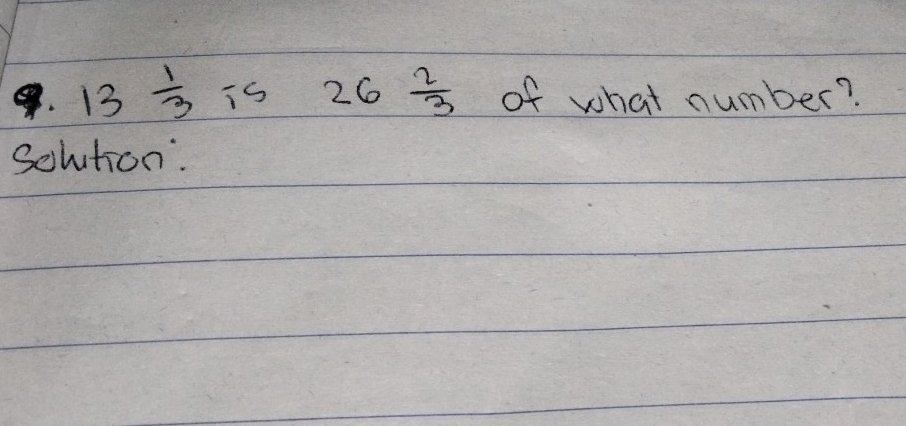 9. 13 1/3 is 26 2/3 of what number?
Solution: